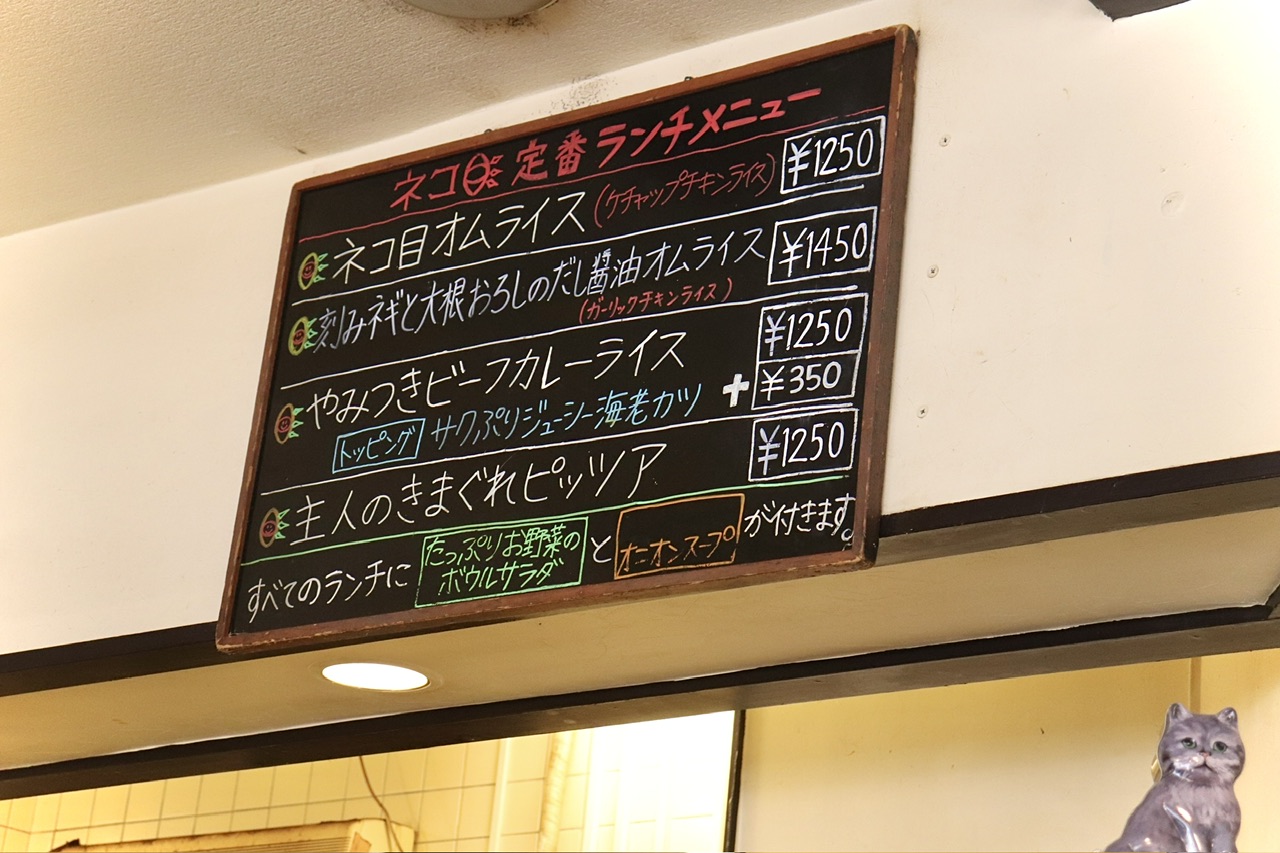 ネコ目 定番ランチメニュー
ネコ目オムライス (ケチャップチキンライス) ¥1250
刻みネギと大根おろしのだし醤油オムライス ¥1450
(ガーリックチキンライス)
やみつきビーフカレーライス ¥1250
トッピング サクぷりジューシー海老カツ + ¥350
主人のきまぐれピッツァ ¥1250
すべてのランチに たっぷりお野菜のボウルサラダ と オニオンスープ が付きます。